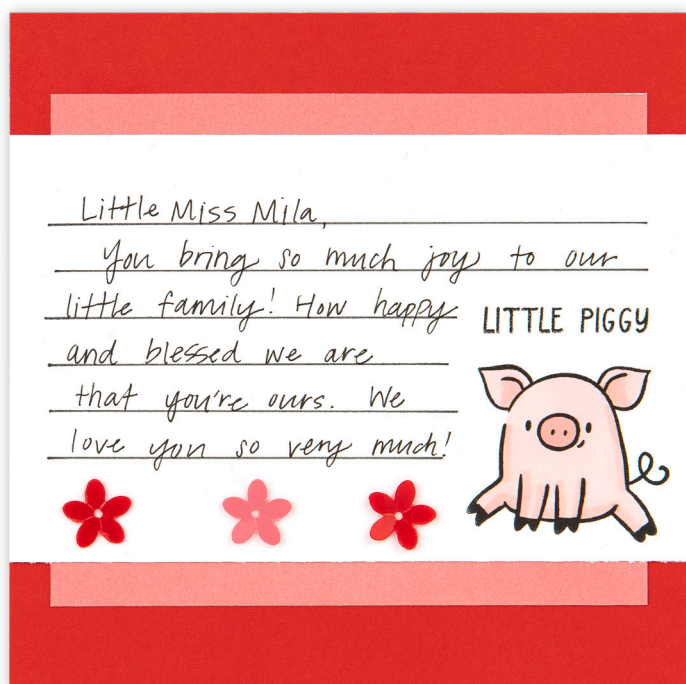 Little Miss Mila,
You bring so much joy to our
little family! How happy
and blessed we are
that you're ours. We
love you so very much!
LITTLE PIGGY